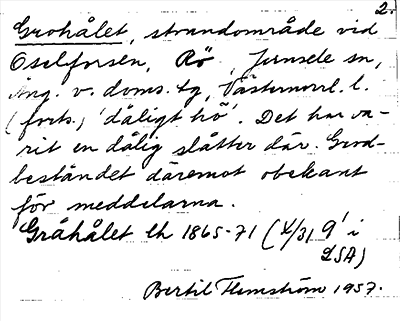 2.
Grohålet, strandområde vid
Oxelforsen, Rö, Junsele sn,
Ång. v. doms. tg, Västernorrl. l.
(forts.) 'dåligt hö'. Det har va-
rit en dålig slåtter där. Grod-
beståndet däremot obekant
för meddelarna.
Gråhålet lh 1865-71 (X/31 9' i
LSA)
Bertil Flemström 1957.